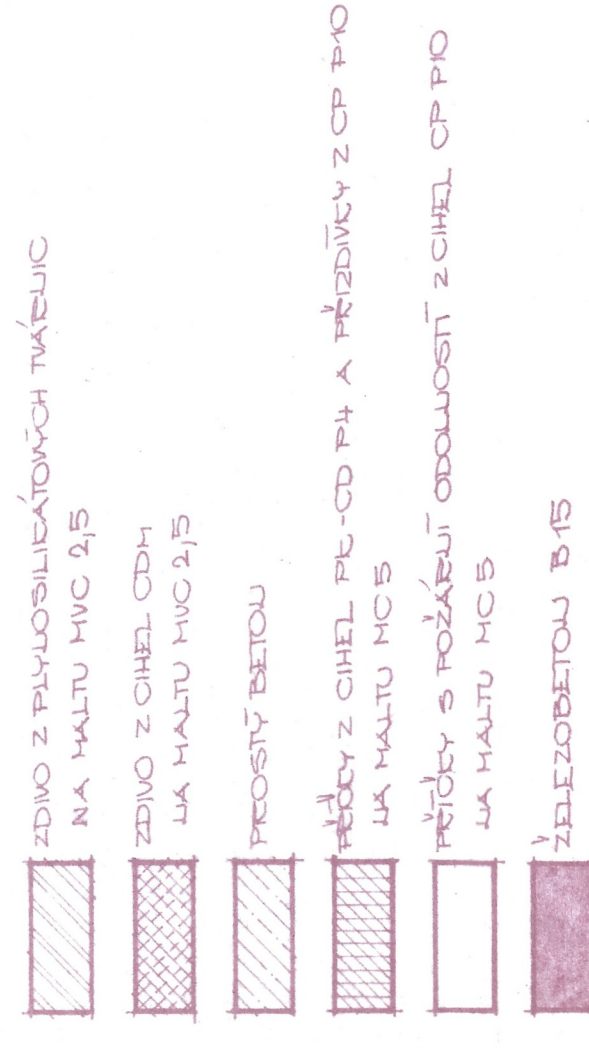 ZDIVO Z PLYNOSILIKÁTOVÝCH TVÁRNIC
NA MALTU MVC 2,5
ZDIVO Z CIHEL CDM
NA MALTU MVC 2,5
PROSTÝ BETON
PŘÍČKY Z CIHEL PK-CD P4 A PŘIZDÍVKY Z CP P10
NA MALTU MC5
PŘÍČKY S POŽÁRNÍ ODOLNOSTÍ Z CIHEL CP P10
NA MALTU MC5
ŽELEZOBETON B15